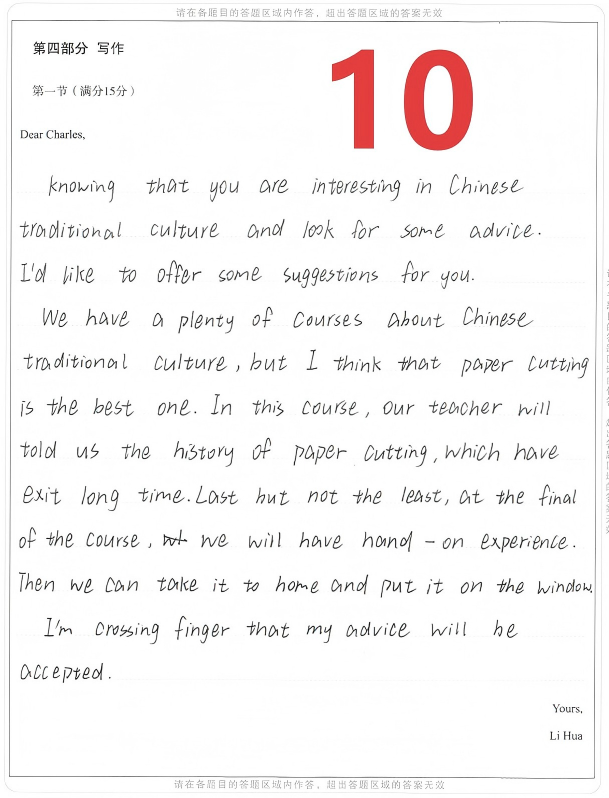 请在各题目的答题区域内作答，超出答题区域的答案无效
第四部分 写作
10
第一节（满分15分）
Dear Charles,
knowing that you are interesting in Chinese
traditional culture and look for some advice.
I'd like to offer some suggestions for you.
We have a plenty of courses about Chinese
traditional culture, but I think that paper cutting
is the best one. In this course, our teacher will
told us the history of paper cutting, which have
exit long time. Last but not the least, at the final
of the course, we will have hand-on experience.
Then we can take it to home and put it on the window.
I'm crossing finger that my advice will be
accepted.
Yours,
Li Hua
请在各题目的答题区域内作答，超出答题区域的答案无效